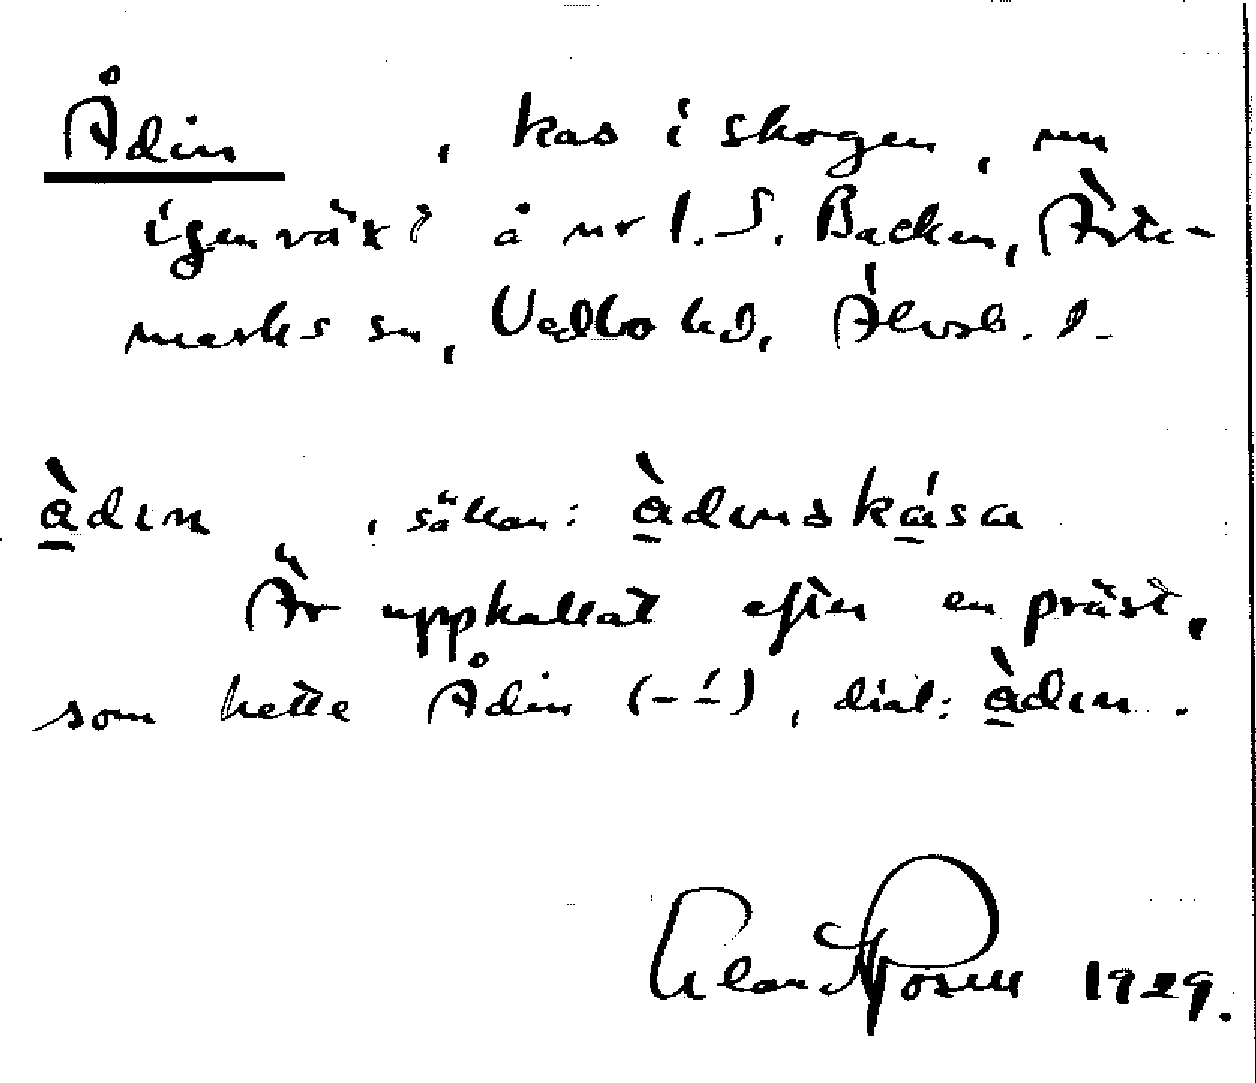 Ådin, kas i skogen, nu
igenväxt å nr 1. S. Backen, Ärte-
marks sn, Vedbo hd, Älvsb. l.
àdın, sällan: àdınskása
Är uppkallat efter en präst,
som hette Ådin (--́), dial: àdın.
1929.